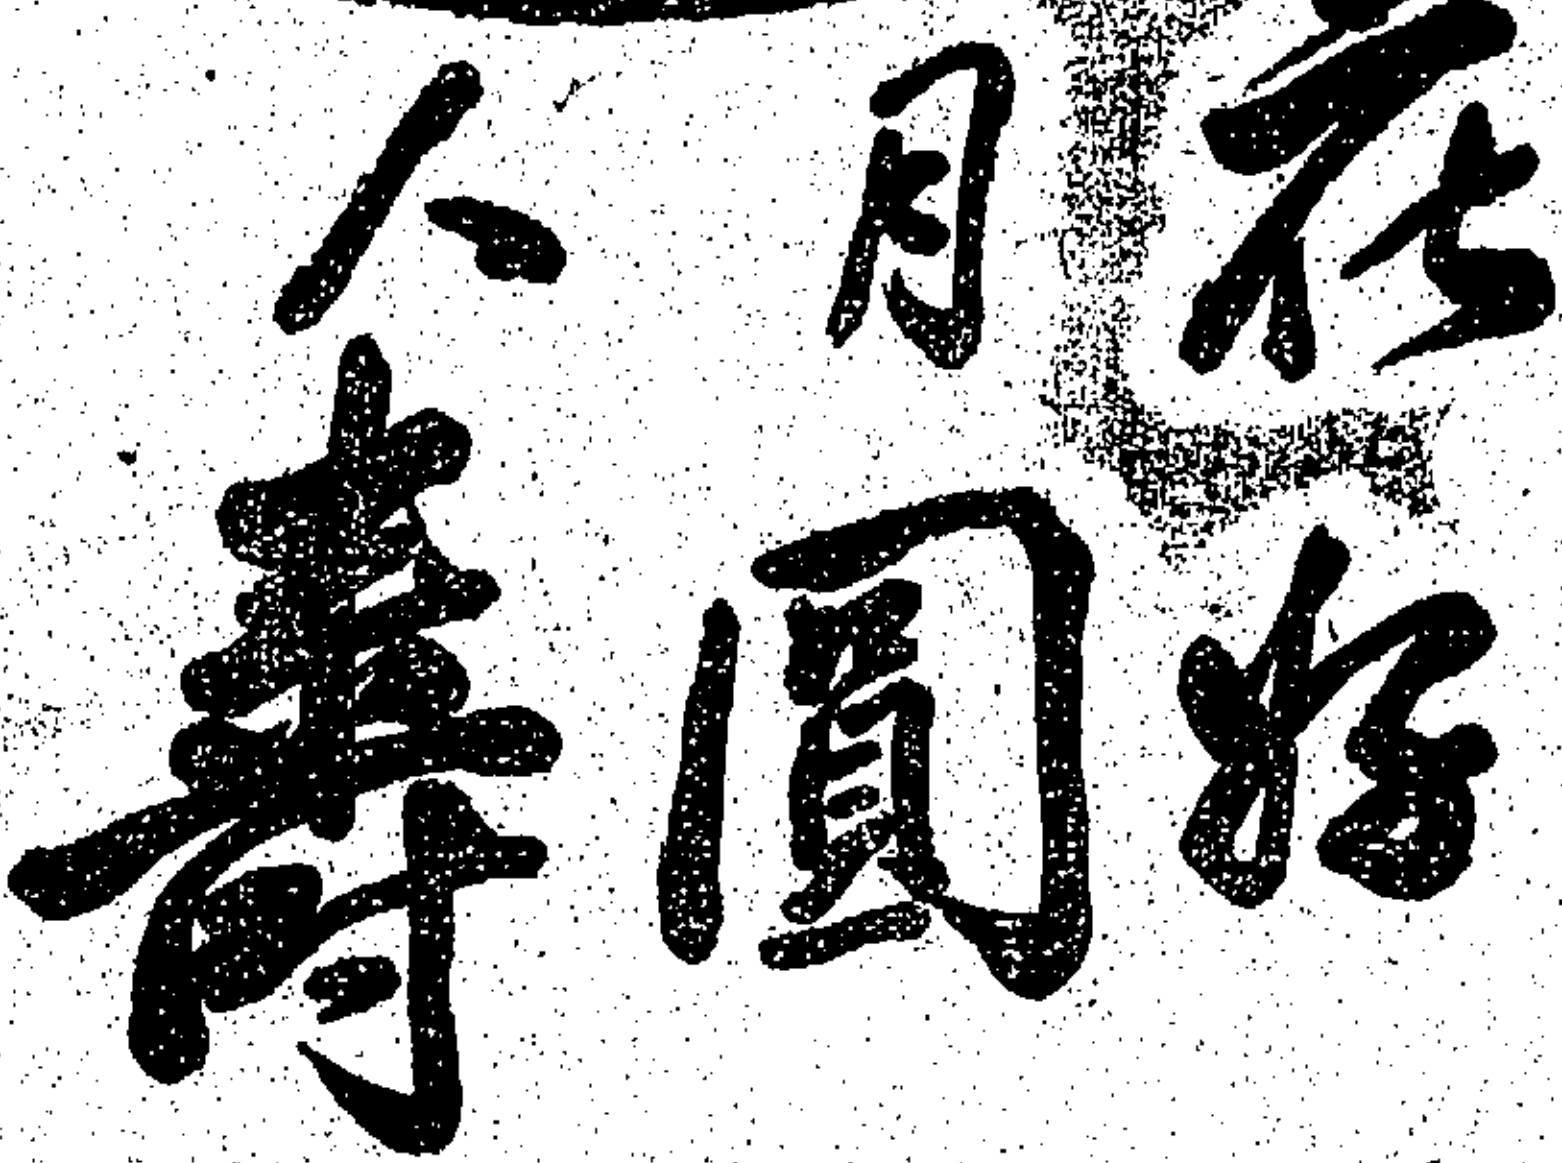 花好
月圓
人壽